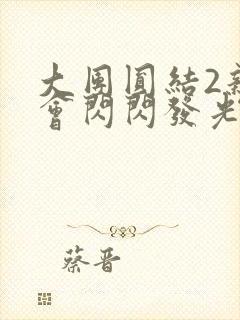 大團圓結2新
會閃閃發光
蔡晋